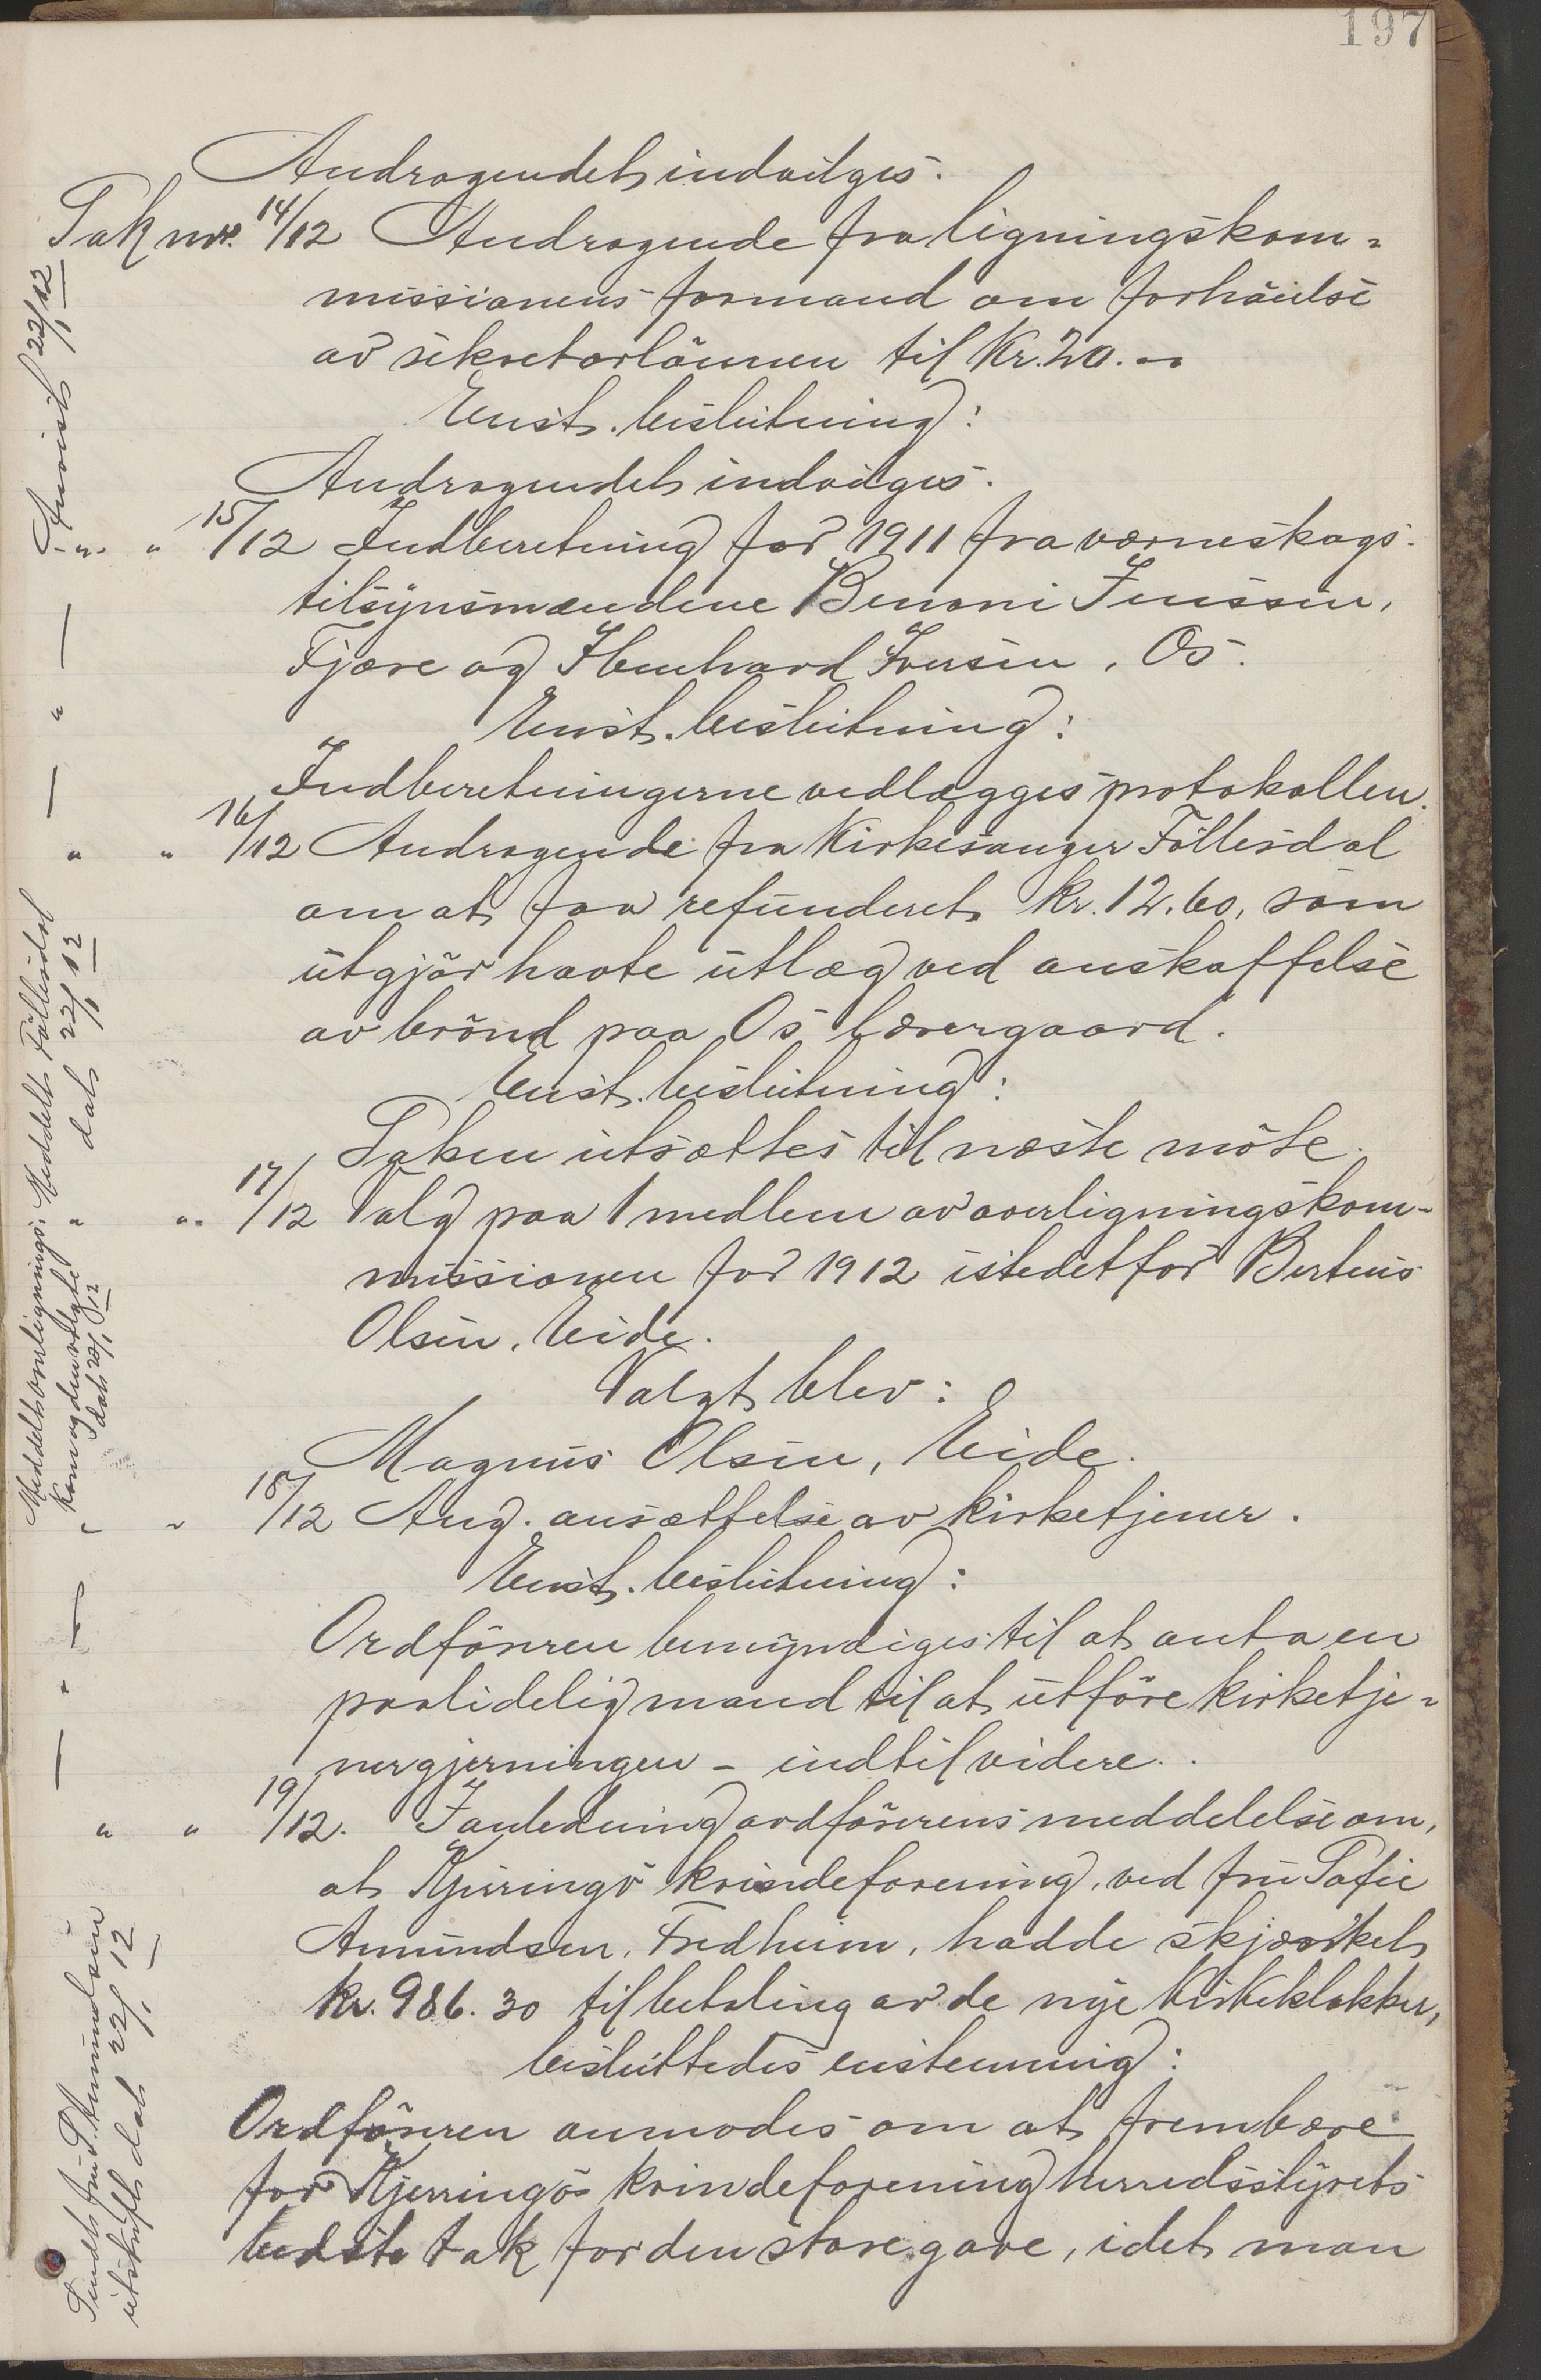 197
Andragendet indvilges.
Sak nr. 14/12 Andragende fra ligningskom-
missionens formand om forhöielse
av sekretærlönnen til Kr. 20.-
Enst. beslutning:
Andragendet indvilges.
-"- " 15/12 Indberetning for 1911 fra værneskogs-
tilsynsmændene Benoni Jenssen,
Fjære og Ibenhard Iversen, Os.
Enst. beslutning:
Indberetningerne vedlægges protokollen.
" " 16/12 Andragende fra Kirkesanger Föllesdal
om at faa refunderet kr. 12.60, som
utgjör havte utlæg ved anskaffelse
av brönd paa Os lærergaard.
Enst. beslutning:
Saken utsættes til næste möte.
" " 17/12 Valg paa 1 medlem av overligningskom-
missionen for 1912 istedetfor Berteus
Olsen, Eide.
Valgt blev:
Magnus Olsen, Eide.
" " 18/12 Ang. ansættelse av kirketjener.
Enst. beslutning:
Ordföreren bemyndiges til at anta en
paalidelig mand til at utföre kirketje-
nergjerningen – indtil videre.
" " 19/12. I anledning ordförerens meddelelse om,
at Kjerringö kvindeforening, ved fru Sofie
Amundsen, Fredheim, hadde skjænket
kr. 986.30 til betaling av de nye kirkeklokker,
besluttedes enstemmig:
Ordföreren anmodes om at frembære
for Kjerringö kvindeforening herredsstyrets
bedste tak for den store gave, idet man
Anvist 22/1 12
— " —
Meddelt Föllesdal
dat 22/1 12
Meddelt overlignings-
kom og den valgte
dat 20/1 12
— " —
Sendt fru S. Amundsen
utskrift dat 22/1 12